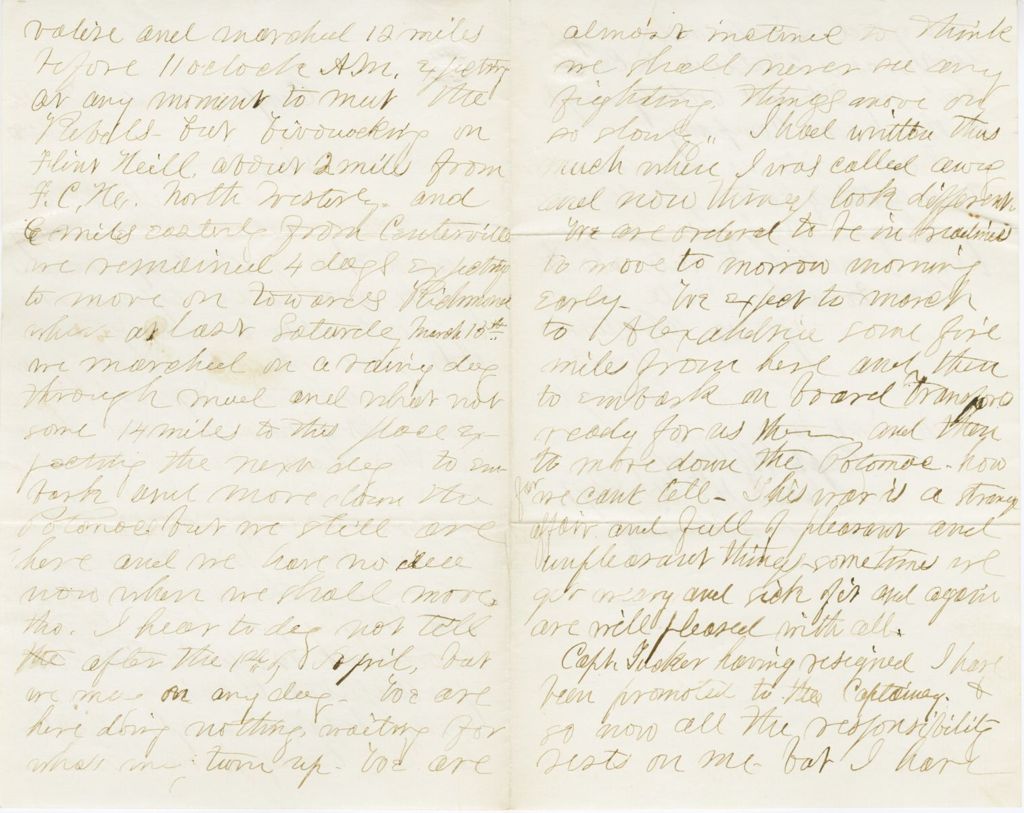 valise and marched 12 miles
before 11 oclock A.M. expecting
at any moment to meet the
Rebels- but bivouacking on
Flint Heill. about 2 miles from
F. C. Ho. North Westerly. and
6 miles easterly from Centerville
we remained 4 days expecting
to move on towards Richmond
when at last Saturday March 15th
we marched on a rainy day
through mud and what not
some 14 miles to this place ex-
pecting the next day to em-
bark and move down the
Potomac but we still are
here and we have no idea
now when we shall move,
tho. I hear to day not till
the after the 1st of April, but
we may on any day- We are
here doing nothing, waiting for
what may turn up- We are
almost inclined to think
we shall never see any
fighting things move on
so slowly". I had written thus
much when I was called away
and now things look different
We are ordered to be in readiness
to move to morrow morning
early- We expect to march
to Alexandria some five
miles from here and then
to embark on board transports
ready for us and then
to move down the Potomac- how
far we cant tell- This war is a strange
affair and full of pleasant and
unpleasant things- sometimes we
get weary and sick of it and again
are well pleased with all.
Capt. Tucker having resigned I have
been promoted to the Captaincy. &
so now all the responsibility
rests on me- but I have